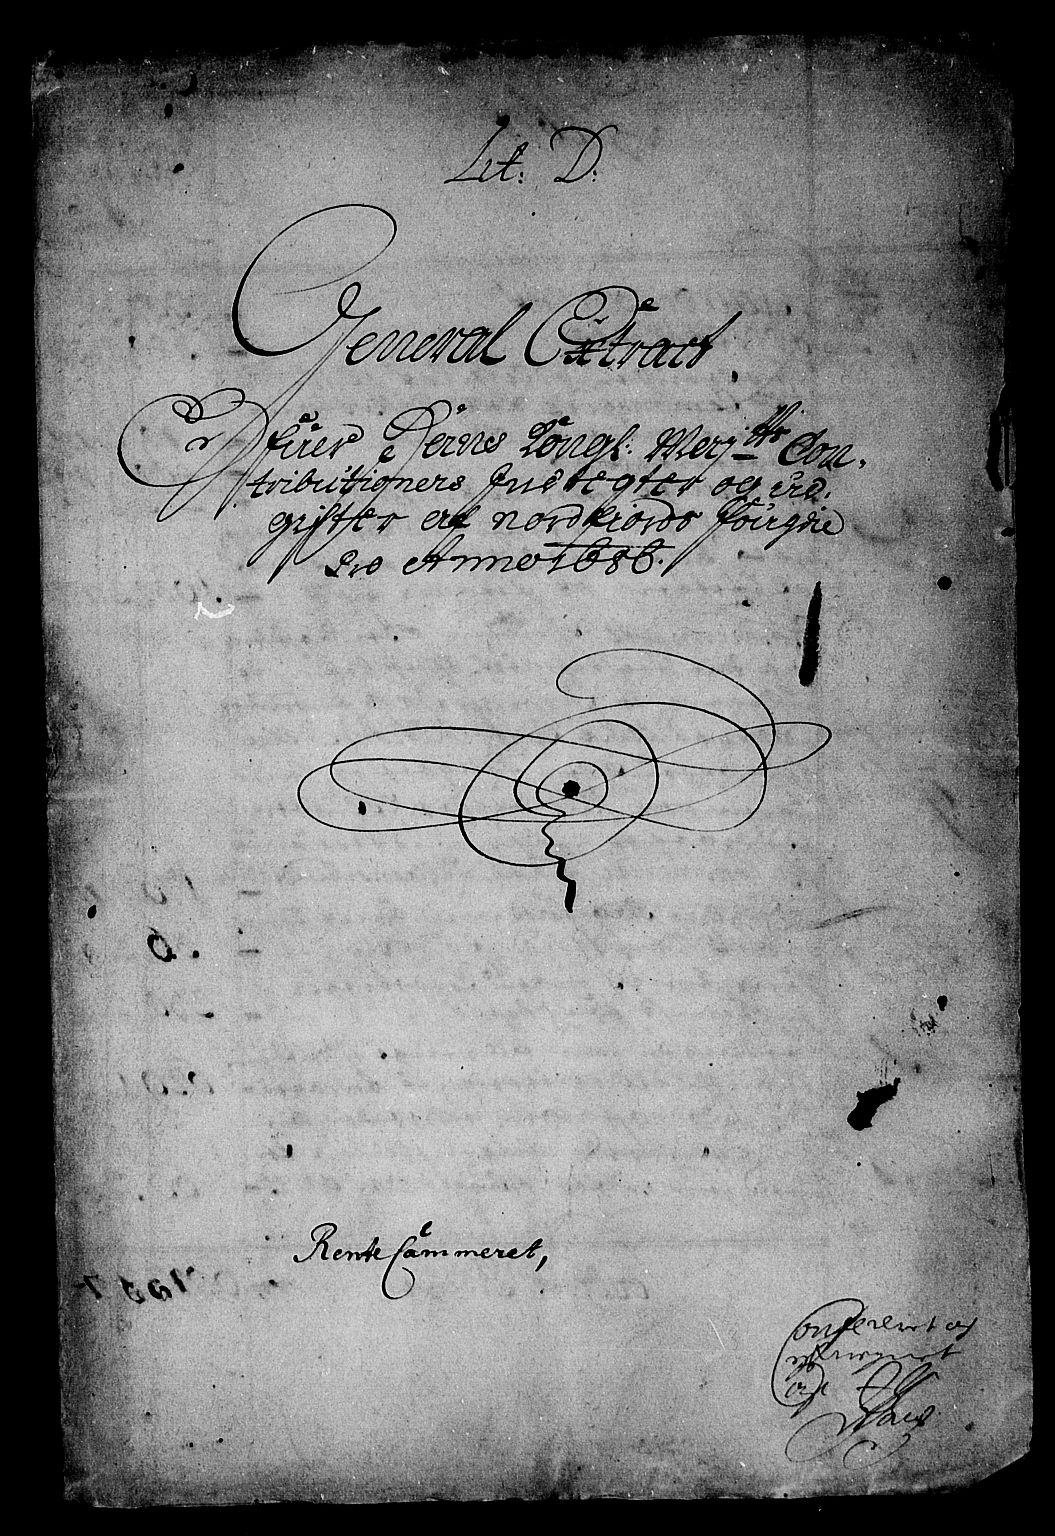 Lit. D.
General Extract
Ofuer Deris Kongl: Mayts Con,
tributioners Indtegter og ud,
giffter af Nordfiords fougdrie
Pro Anno 1686.
Rente Cammeret,
Confererit og